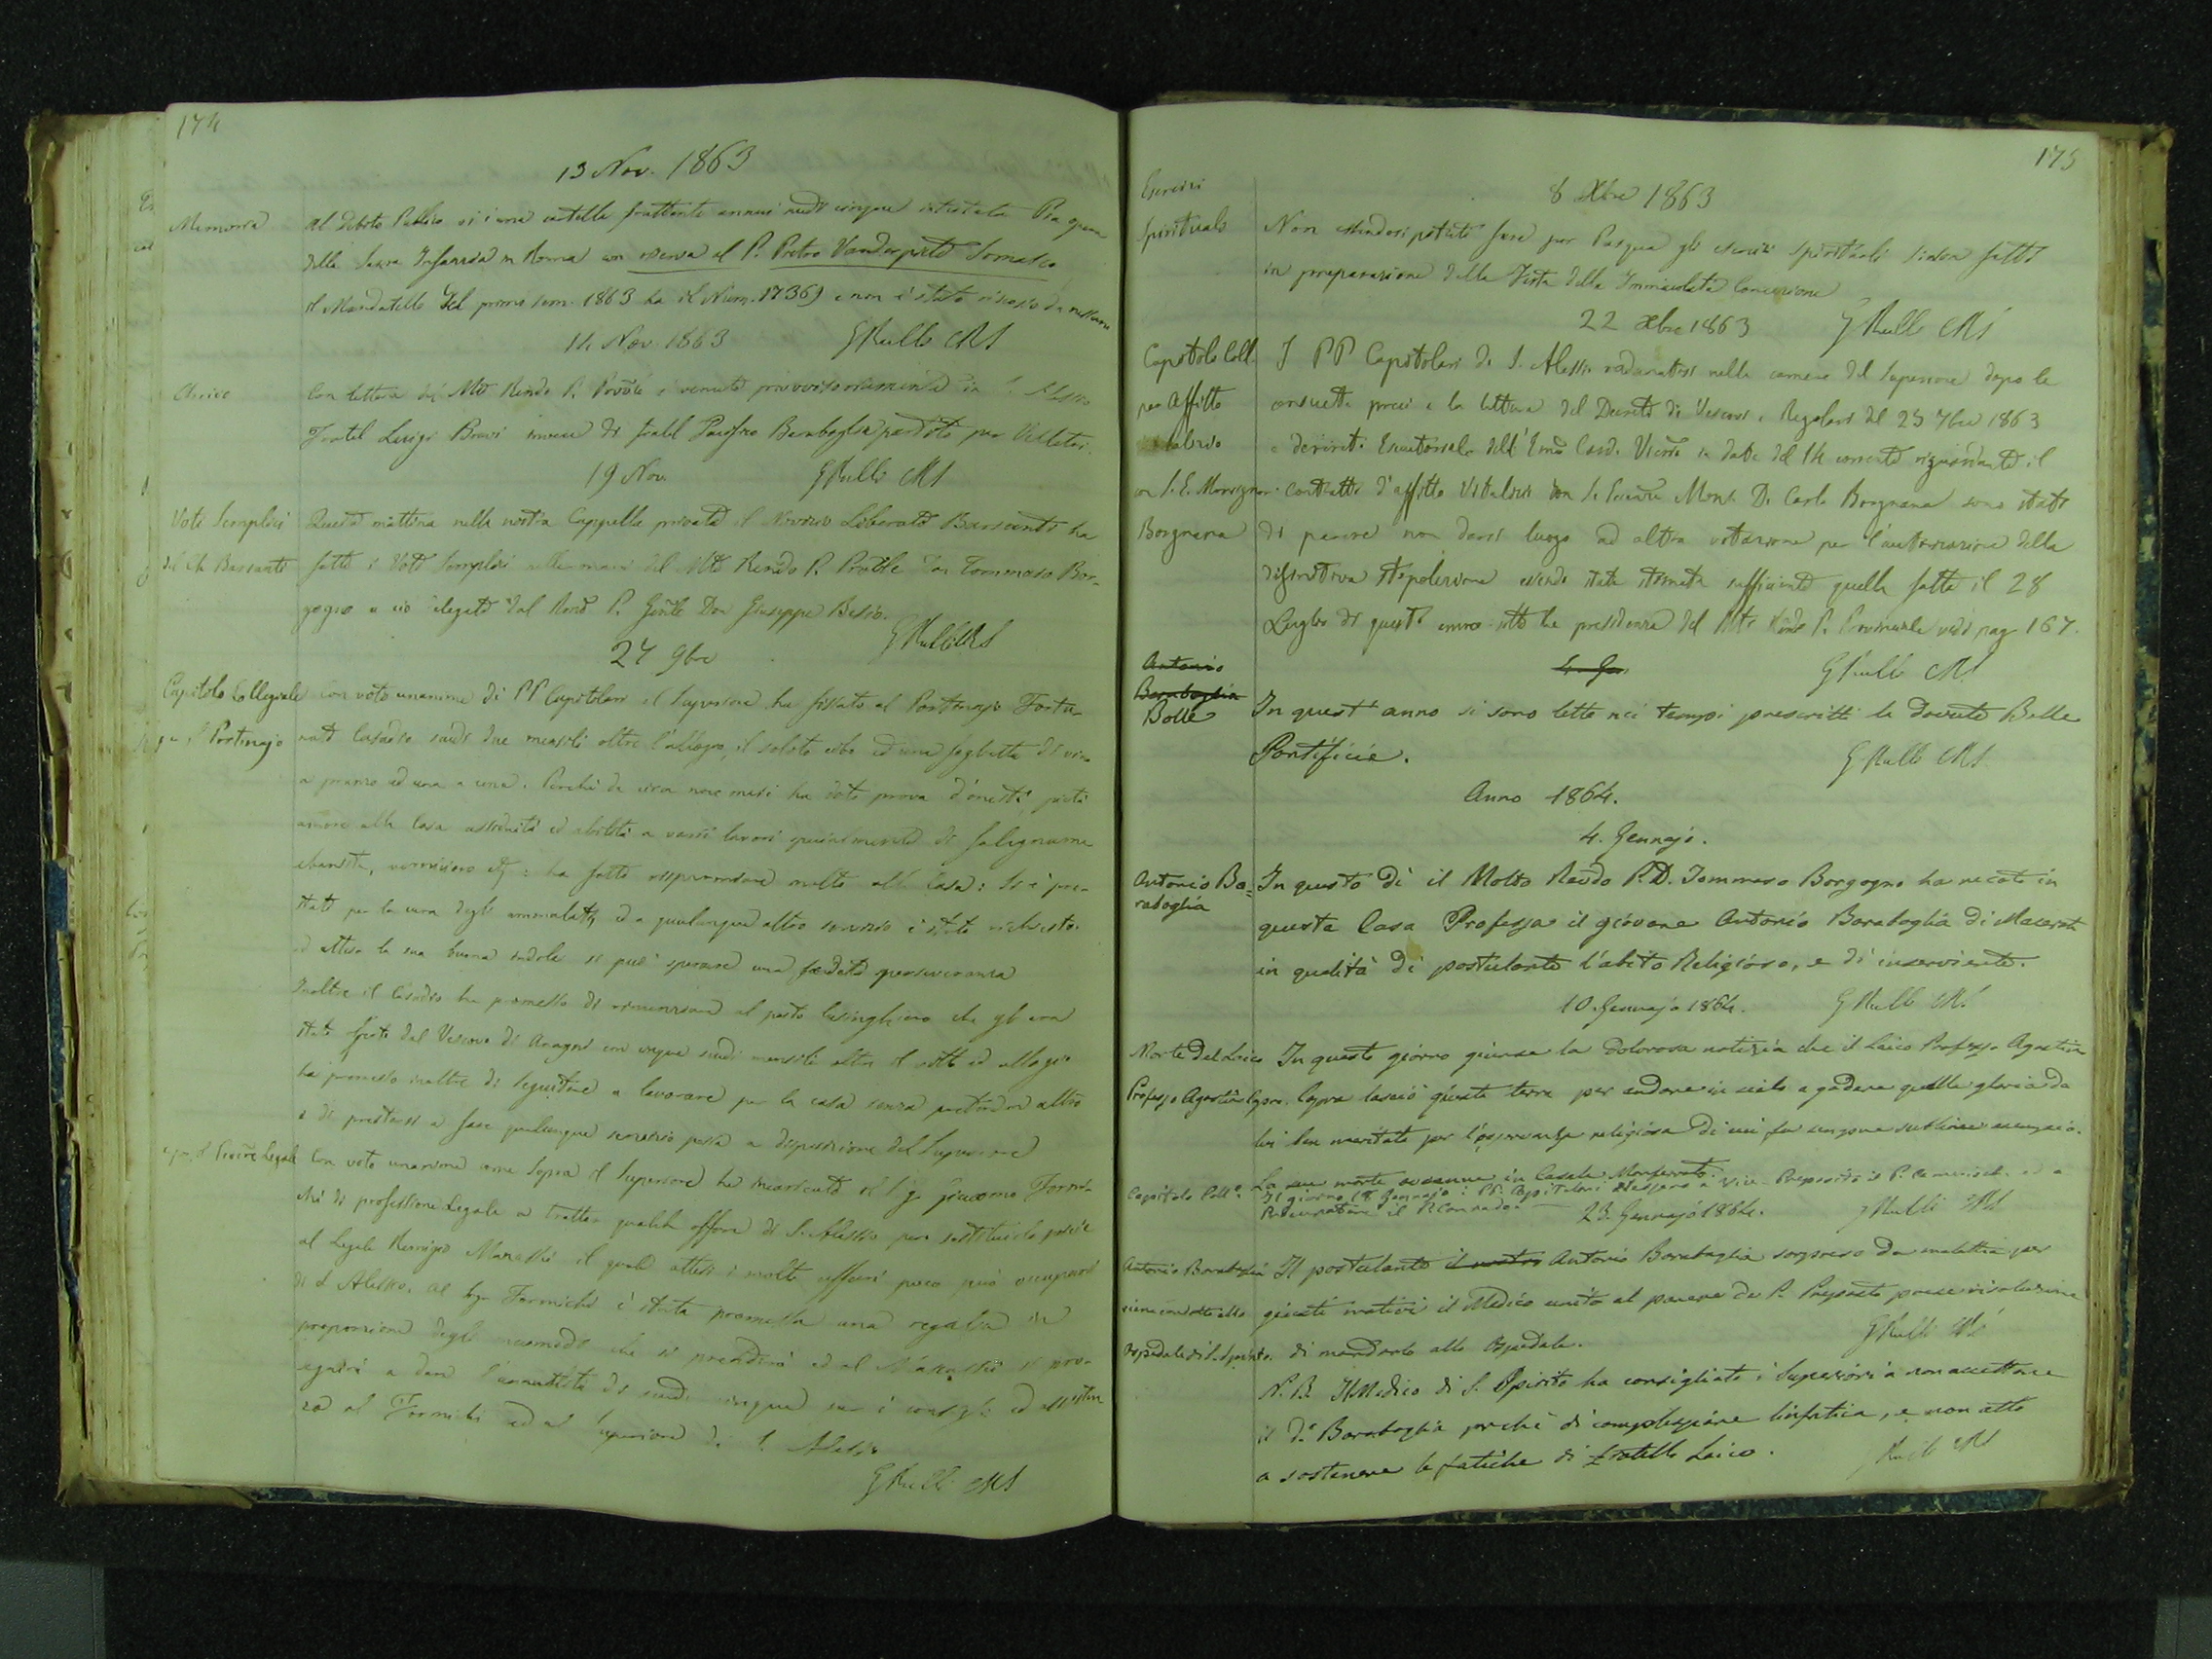 174
13 Nov. 1863
Memoria
Al Debito Pubblico vi è una cartella fruttante annui scudi cinque intestata Pia opera
della Sacra Infanzia in Roma con riserva al P. Pietro Vandespirto Somasco
il Mandatello del primo sem. 1863 ha il Num. 1736) e non è stato riscosso da nessuno
14 Nov. 1863 GRulli CRS
Arrivo
Con lettera del Mto Rendo P. Provle è venuto provvisoriamente in S. Alessio
Fratel Luigi Bravi invece di Fratel Barabaglia partito per Velletri.
19 Nov. GRulli CRS
Voti Semplici
del Ch. Bassanti
Questa mattina nella nostra Cappella privata il Novizio Liberato Bassanti ha
fatto i Voti Semplici nelle mani del Mto Rendo P. Provle Don Tommaso Bor-
gogno a ciò delegato dal Revmo P. Genle Don Giuseppe Besio.
GRulli CRS
27 9bre
Capitolo Collegiale
pel Portinajo
Con voto unanime di PP Capitolari il Superiore ha fissato al Portinajo Fortu-
nato Casadio scudi due mensili oltre l'alloggio, il solito cibo ed una foglietta di vino
a pranzo ed una a cena. Perché da circa nove mesi ha dato prova d'onestà, pietà
amore alla Casa assiduità ed abilità a varii lavori specialmente di falegname
ebanista, verniciaro etc: ha fatto risparmiare molto alla Casa: Si è pre-
stato per la cura degli ammalati, ed a qualunque altro servizio è stato richiesto.
ed attesa la sua buona indole si può sperare una fondata perseveranza
Inoltre il Casadio ha promesso di rinunziare al posto lusinghiero che gli era
stato offerto dal Vescovo di Anagni con cinque scudi mensili oltre il vitto ed alloggio
ha promesso inoltre di seguitare a lavorare per la casa senza pretendere altro
e di prestarsi a fare qualunque servizio posto a disposizione del Superiore
Legale
Con voto unanime come sopra il Superiore ha incaricato il Sig. Giacomo Formi-
chi di professione Legale a trattare qualche affare di S. Alessio per sostituirlo poscia
al Legale Remigio Marassi il quale attesi i molti affari poco può occuparsi
di S. Alessio. Al Sig. Formichi è stata promessa una regalia in
proporzione degli incomodi che si prenderà ed al Marassi si pro-
seguirà a dare l'annualità di scudi cinque per i consigli ed assisten
za al Formichi ed al Superiore di S. Alessio
GRulli CRS
175
Esercizi
Spirituali
8 Xbre 1863
Non essendosi potuti fare per Pasqua gli esercizi spirituali si son fatti
in preparazione della Festa della Immacolata Concezione
22 Xbre 1863 GRulli CRS
Capitolo Coll.
per Affitto
vitalizio
con S. E. Monsignor
Borgnana
I PP Capitolari di S. Alessio radunatisi nella camera del Superiore dopo le
consuete preci e la lettura del Decreto di Vescovi e Regolari del 25 7bre 1863
e decreto Esecutoriale dell'Emo Card. Vicario in data del 14 corrente riguardante il
contratto d'affitto Vitalizio con S. Eccnza Mons. D. Carlo Borgnana sono stati
di parere non darsi luogo ad altra votazione per l'autorizzazione della
definitiva stipolazione essendo stata stimata sufficiente quella fatta il 28
Luglio di quest'anno sotto la presidenza del Mto Rndo P. Provinciale vedi pag 167.
Antonio
Barabaglia
4. Gen. GRulli CRS
Bolle
In quest'anno si sono lette nei tempi prescritti le dovute Bolle
Pontificie.
GRulli CRS
Anno 1864.
4. Gennajo.
Antonio Ba=
rabaglia
In questo dì il Molto Revdo P. D. Tommaso Borgogno ha recato in
questa Casa Professa il giovane Antonio Barabaglia di Macerata
in qualità di postulante l'abito Religioso, e di inserviente.
10. Gennajo 1864. GRulli CRS
Morte del Laico
Professo Agostino Copra.
In questo giorno giunse la dolorosa notizia che il Laico Professo Agostino
Copra lasciò questa terra per andare in cielo a godere quella gloria da
lui ben meritata per l'osservanza religiosa di cui fu sempre sublime esempio.
La sua morte avvenne in Casale Monferrato.
Capitolo Coll.º
Il giorno 18 Gennajo i PP. Capitolari elessero a Vice-Preposito il P. ed a
Procuratore il P. Conrado.
23. Gennajo 1864. GRulli CRS
Antonio Barabaglia
viene condotto allo
Ospedale di S. Spirito.
Il postulante il nostro Antonio Barabaglia sorpreso da malattia per
giusti motivi il Medico unito al parere del P. Preposto prese risoluzione
di mandarlo allo Ospedale. GRulli CRS
N. B. Il Medico di S. Spirito ha consigliato i Superiori a non accettare
il do Barabaglia perché di complessione linfatica, e non atto
a sostenere le fatiche di Fratello Laico. Rulli CRS